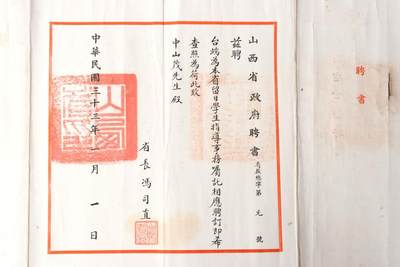 山西省政府聘書 字第 元 號
茲聘
台端為本省留日學生指導事務囑託相應聘訂即希
查照為荷此致
中山茂先生 殿
省長 馮司直
中華民國三十三年 一 月 一 日
聘書